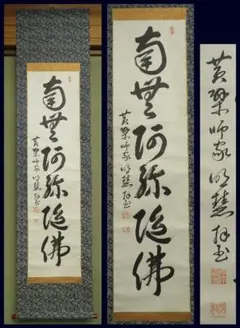 南無阿弥陀佛
黄檗師家明慧拝書
南無阿弥陀佛
黄檗師家明慧拝書
黄檗師家明慧拝書